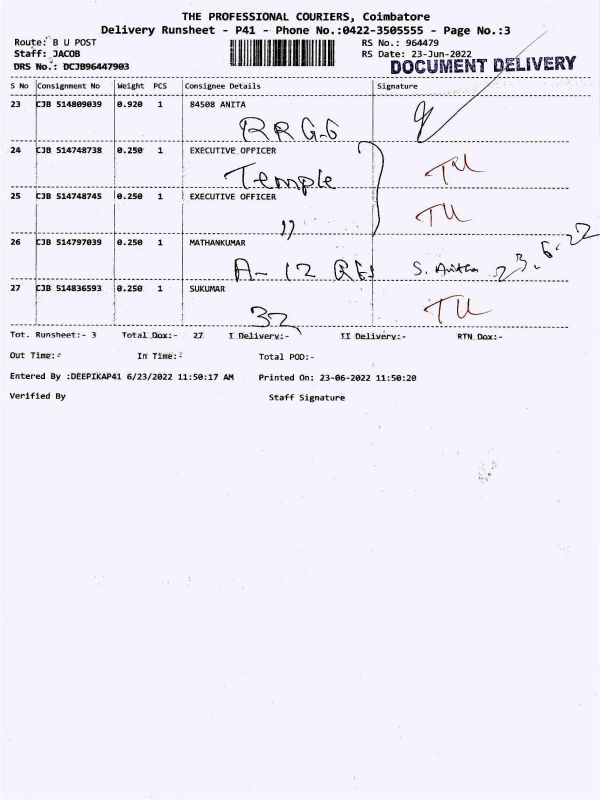 THE PROFESSIONAL COURIERS, Coimbatore
Delivery Runsheet - P41 - Phone No.:0422-3505555 - Page No.:3
Route: B U POST RS No.: 964479
Staff: JACOB RS Date: 23-Jun-2022
DRS No.: DCJB96447903 DOCUMENT DELIVERY
S No Consignment No Weight PCS Consignee Details Signature
23 CJB 514809039 0.920 1 84508 ANITA
RRG-6
24 CJB 514748738 0.250 1 EXECUTIVE OFFICER
Temple TU
25 CJB 514748745 0.250 1 EXECUTIVE OFFICER
" TU
26 CJB 514797039 0.250 1 MATHANKUMAR
A-12 S. 23.6.22
27 CJB 514836593 0.250 1 SUKUMAR
32 TU
Tot. Runsheet:- 3 Total Dox:- 27 I Delivery:- II Delivery:- RTN Dox:-
Out Time:- In Time:- Total POD:-
Entered By :DEEPIKAP41 6/23/2022 11:50:17 AM Printed On: 23-06-2022 11:50:20
Verified By Staff Signature